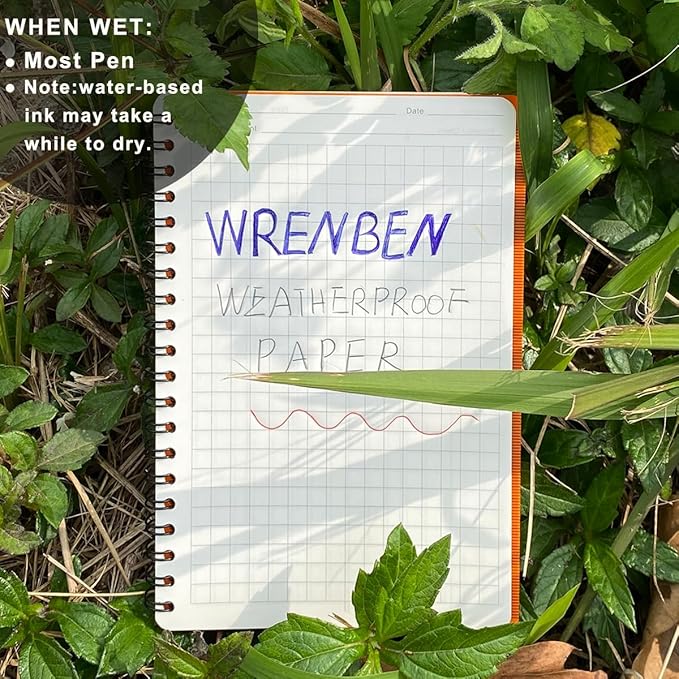 WHEN WET:
• Most Pen
• Note:water-based
ink may take a
while to dry.
Date
WRENBEN
WEATHERPROOF
PAPER